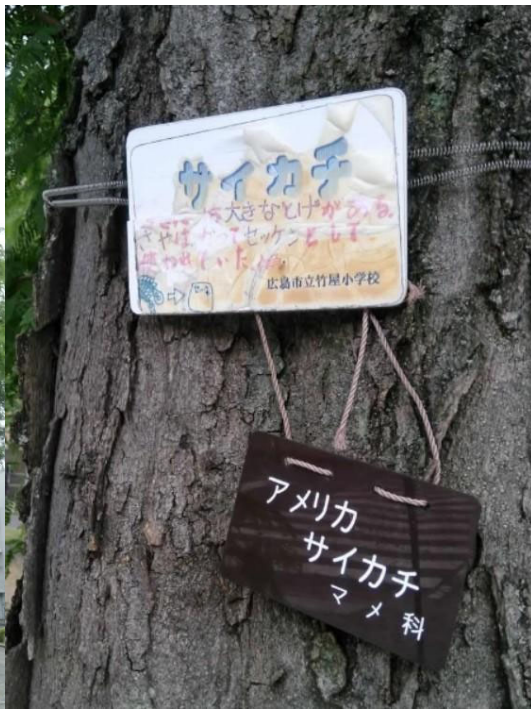 サイカチ
大きなとげがある。
さやは かつてセッケンとして
使われていた。
広島市立竹屋小学校
アメリカ
サイカチ
マメ科